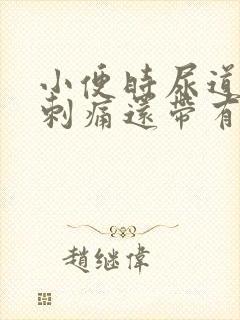 小便时尿道
刺痛還帶有
趙继偉